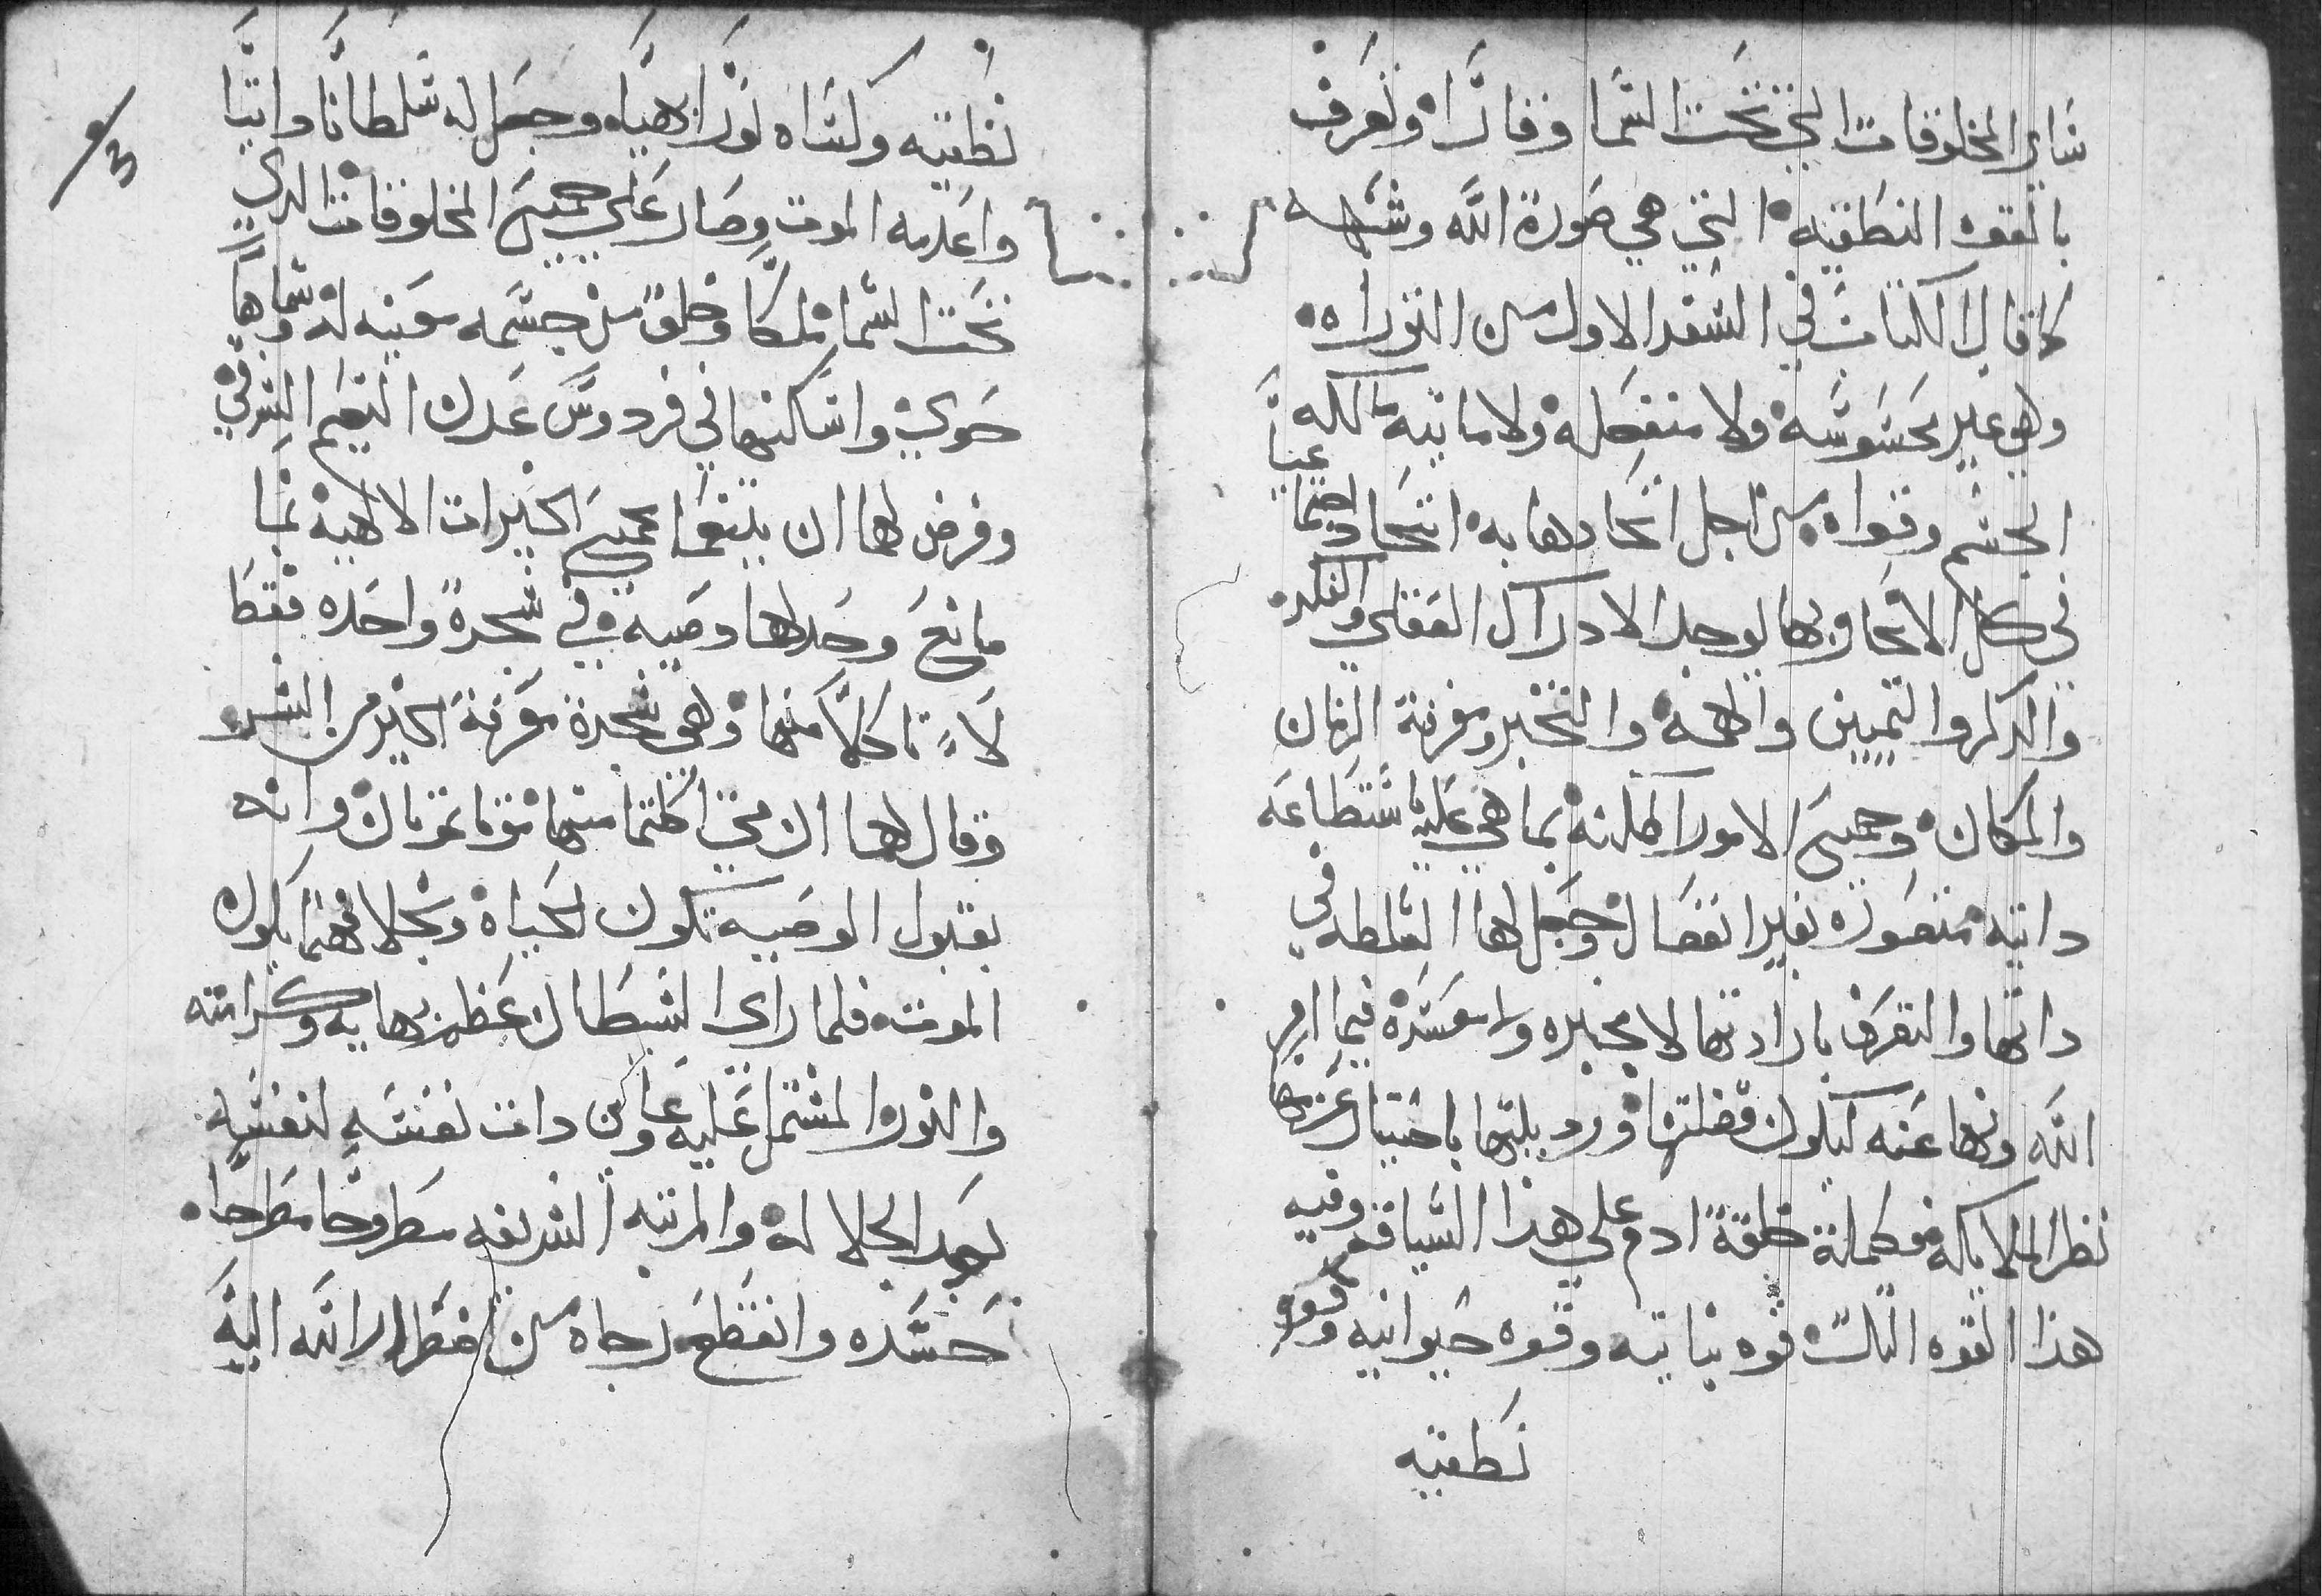 ساير المخلوقات التي تحت السما وفاقرا وتعرف
بالقوه النطقيه التي هي صورة الله وشبهه
كما قال الكتاب في السفر الاول من التوراه
وهي غير محسوسه ولا منفصله ولا مايته مالكه
الجسم وقواه من اجل اتحادها به اتحادا عجيبا
في كل الانحا وبها يوجد الادراك العقلي والفكر
والذكر والتمييز والفهم والتخير ومعرفة الزمان
والمكان وجميع الامور الممكنه بما هي عليه مستطاعه
داتيه متصوره بغير انفصال وجعل لها السلطه في
داتها والتصرف بارادتها لا مجبره ولا مفسده فيما امر
الله ونها عنه ليكون فضلتها وردىلتها باختيار غيرها
نظر الملايكه فكملة خلقة ادم على هذا السياقه وفيه
هذا القوه التلت قوه نباتيه وقوه حيوانيه وقوه
نطقيه
نطقيه وكساه نورا بهياه وجعل له سلطانا واتيا
واعدمه الموت وصار على جميع المخلوقات الدي
تحت السما ملكا وخلق من جسمه معينه له وسماها
حوي واسكنهما في فردوس عدن النعيم الشرقي
وفرض لهما ان يتنعما بجميع الخيرات الالاهيه بما
مانع وحد لهما وصيه في شجرة واحده فقط
لا تاكلا منها وهي شجرة معرفة الخير من الشر
وقال لهما ان متي اكلتما منها موتا تموتان وانه
بقبول الوصيه تكون الحياه وبخلافهما يكون
الموت فلما راى الشيطان عظم بهايه وكرامته
والنور المشتمل عليه وعاين دات نفسه لنفسه
بعد الجلاله والمرتبه الشريفه مطروحا مطرحا
حسده وانقطع رجاه من اضطرار الله اليه